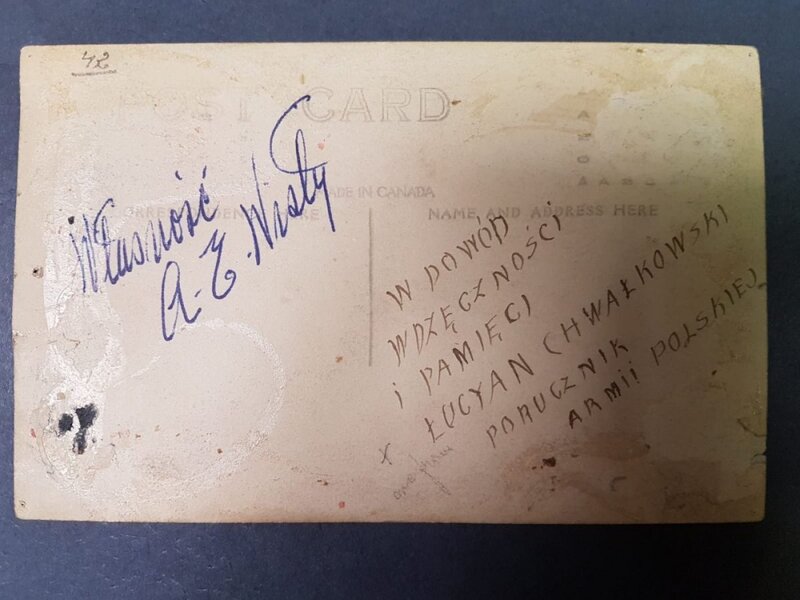 42
POST CARD
MADE IN CANADA
CORRESPONDENCE HERE
NAME AND ADDRESS HERE
Własność
A. E. Wisły
W DOWÓD
WDZĘCZNOŚCI
i PAMIĘCI
ŁUCYAN CHWAŁKOWSKI
PORUCZNIK
ARMII POLSKIEJ